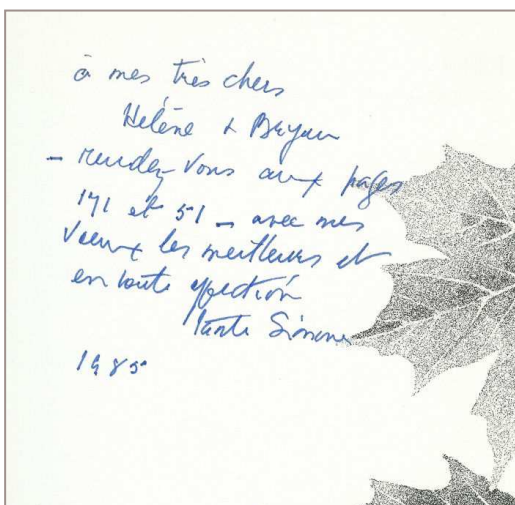 à mes très chers
Hélène & Bryan
– rendez-vous aux pages
191 et 51 – avec mes
vœux les meilleurs et
en toute affection
Tante Simone
1985